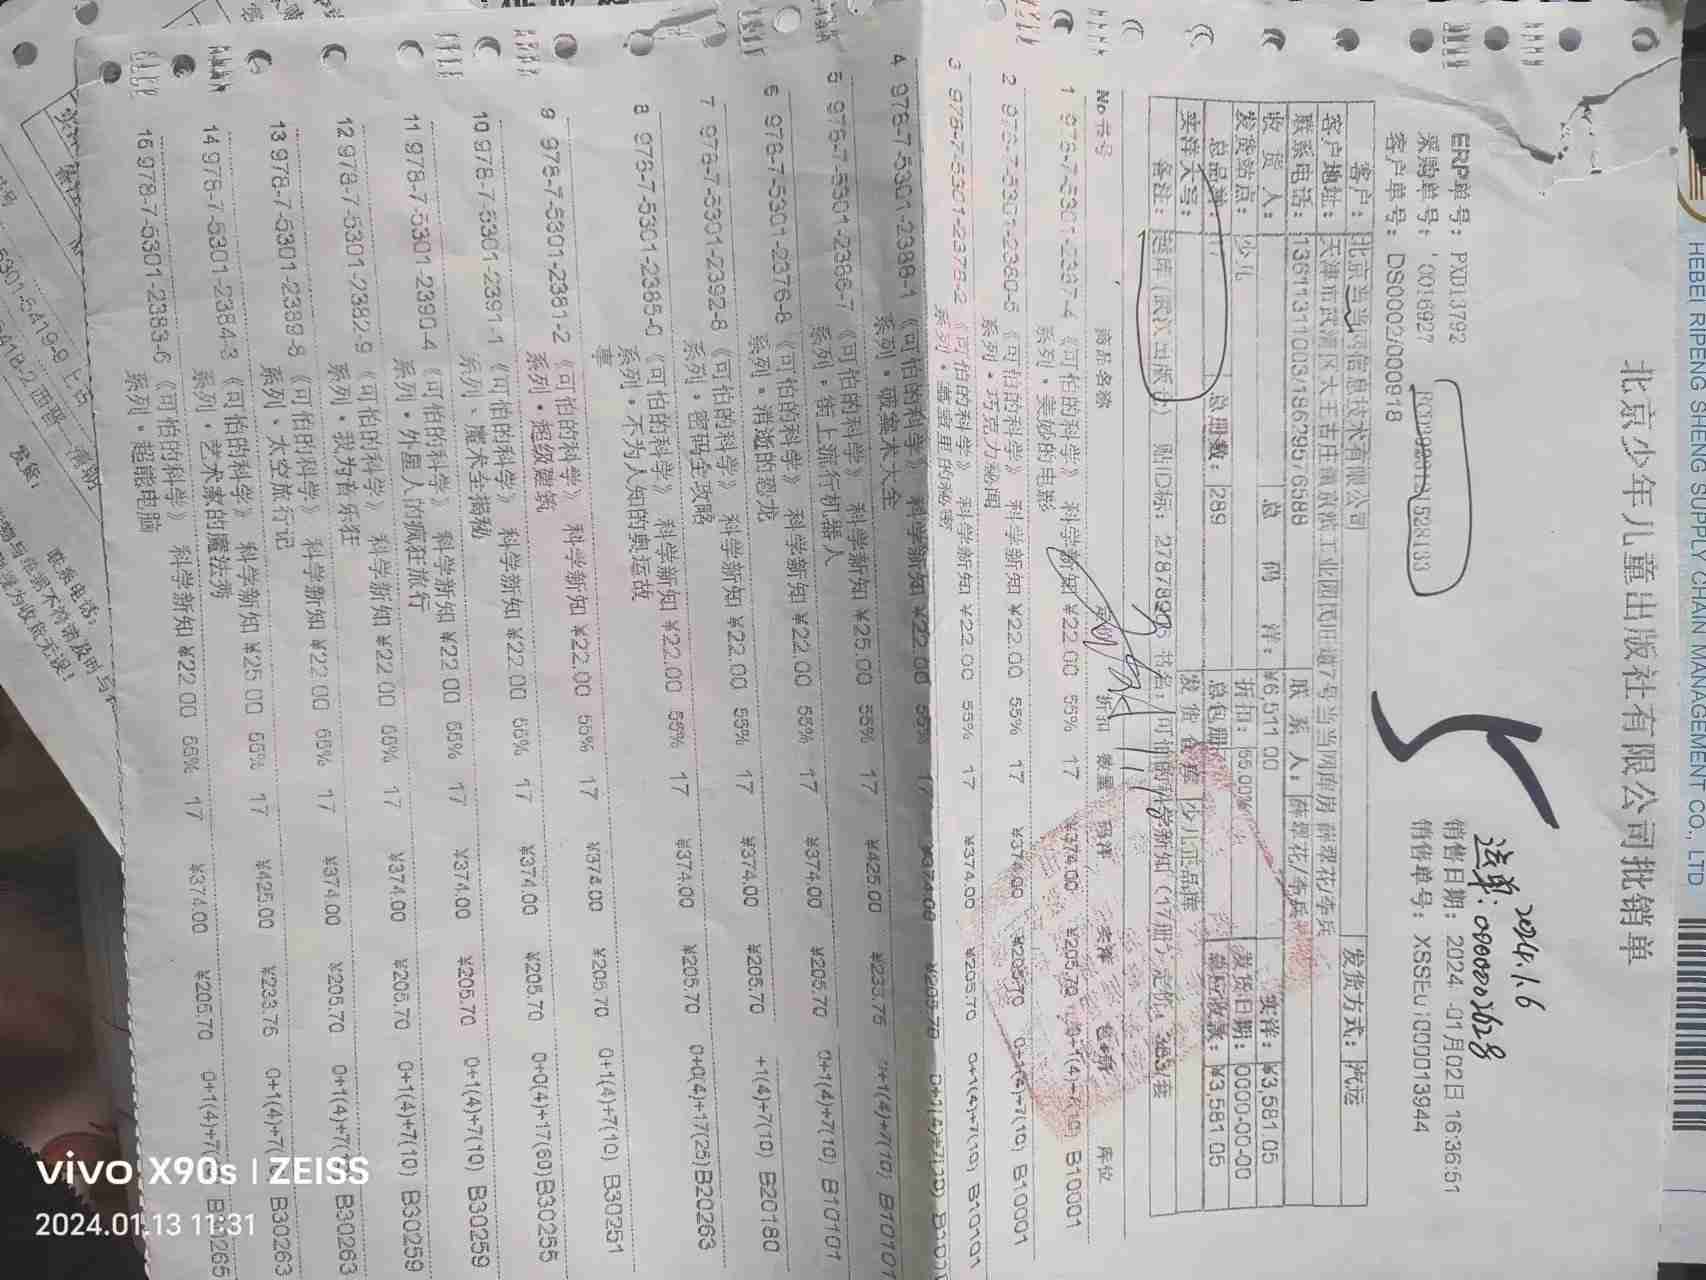 HEBEI RIPENG SHENG SUPPLY CHAIN MANAGEMENT CO., LTD
北京少年儿童出版社有限公司批销单
2024.1.6
送单: 0900002628
ERP单号: PXD13792
销售日期: 2024-01月02日 16:36:51
采购单号: '0016927
销售单号: XSSEu100013944
客户单号: DS0002/000918
客户: 北京当当网信息技术有限公司
发货方式: 汽运
客户地址: 天津市武清区大王古庄镇京滨工业园民旺道7号当当网库房 薛翠花/李兵
联系电话: 13611311003/18629576588
联系人: 薛翠花/李兵
收货人:
总码洋: ¥6,511.00
实洋: ¥3,581.05
发货站点: 少儿
折扣: 55.00%
发货日期: 0000-00-00
总品种: 17
总册数: 289
总包册
应收款: ¥3,581.05
实洋大写:
发货仓库 少儿正品库
备注: 进库(武汉出版) 贴ID标: 27878906 书名: 可怕的科学新知(17册) 定价: 383/套
No 书号 商品名称 折扣 数量 码洋 实洋 包*册 库位
1 978-7-5301-2387-4 《可怕的科学》 科学新知 ¥22.00 55% 17 ¥374.00 ¥205.70 0+1(4)+7(10) B10001
系列·美妙的电影
2 978-7-5301-2380-5 《可怕的科学》 科学新知 ¥22.00 55% 17 ¥374.00 ¥205.70 0+1(4)+7(10) B10001
系列·巧克力秘闻
3 978-7-5301-2378-2 《可怕的科学》 科学新知 ¥22.00 55% 17 ¥374.00 ¥205.70 0+1(4)+7(10) B10101
系列·墓室里的秘密
4 978-7-5301-2388-1 《可怕的科学》 科学新知 ¥22.00 55% 17 ¥374.00 ¥205.70
系列·破案术大全
5 978-7-5301-2386-7 《可怕的科学》 科学新知 ¥25.00 55% 17 ¥425.00 ¥233.75 0+1(4)+7(10) B10101
系列·街上流行机器人
6 978-7-5301-2376-8 《可怕的科学》 科学新知 ¥22.00 55% 17 ¥374.00 ¥205.70 0+1(4)+7(10) B10101
系列·消逝的恐龙
7 978-7-5301-2392-8 《可怕的科学》 科学新知 ¥22.00 55% 17 ¥374.00 ¥205.70 +1(4)+7(10) B20180
系列·密码全攻略
8 978-7-5301-2385-0 《可怕的科学》 科学新知 ¥22.00 55% 17 ¥374.00 ¥205.70 0+0(4)+17(25)B20263
系列·不为人知的奥运故
事
9 978-7-5301-2381-2 《可怕的科学》 科学新知 ¥22.00 55% 17 ¥374.00 ¥205.70 0+1(4)+7(10) B30251
系列·超级建筑
10 978-7-5301-2391-1 《可怕的科学》 科学新知 ¥22.00 55% 17 ¥374.00 ¥205.70 0+0(4)+17(60)B30255
系列、魔术全揭秘
11 978-7-5301-2390-4 《可怕的科学》 科学新知 ¥22.00 55% 17 ¥374.00 ¥205.70 0+1(4)+7(10) B30259
系列·外星人的疯狂旅行
12 978-7-5301-2382-9 《可怕的科学》 科学新知 ¥22.00 55% 17 ¥374.00 ¥205.70 0+1(4)+7(10) B30259
系列·我为音乐狂
13 978-7-5301-2389-8 《可怕的科学》 科学新知 ¥22.00 55% 17 ¥374.00 ¥205.70 0+1(4)+7( B30263
系列、太空旅行记
14 978-7-5301-2384-3 《可怕的科学》 科学新知 ¥25.00 55% 17 ¥425.00 ¥233.75 0+1(4)+7( B30263
系列·艺术家的魔法秀
15 978-7-5301-2383-6 《可怕的科学》 科学新知 ¥22.00 55% 17 ¥374.00 ¥205.70 0+1(4)+7( B30265
系列·超能电脑
5301-5419-9 上古
418-2 西晋
发货:
联系电话:
vivo X90s | ZEISS
2024.01.13 11:31